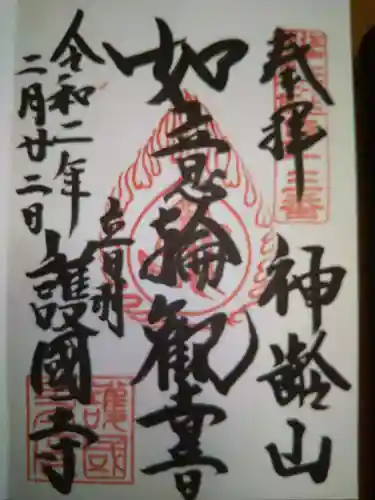 奉拝
神齢山
如意輪観音
音羽
護國寺
令和二年
二月廿二日
護國寺